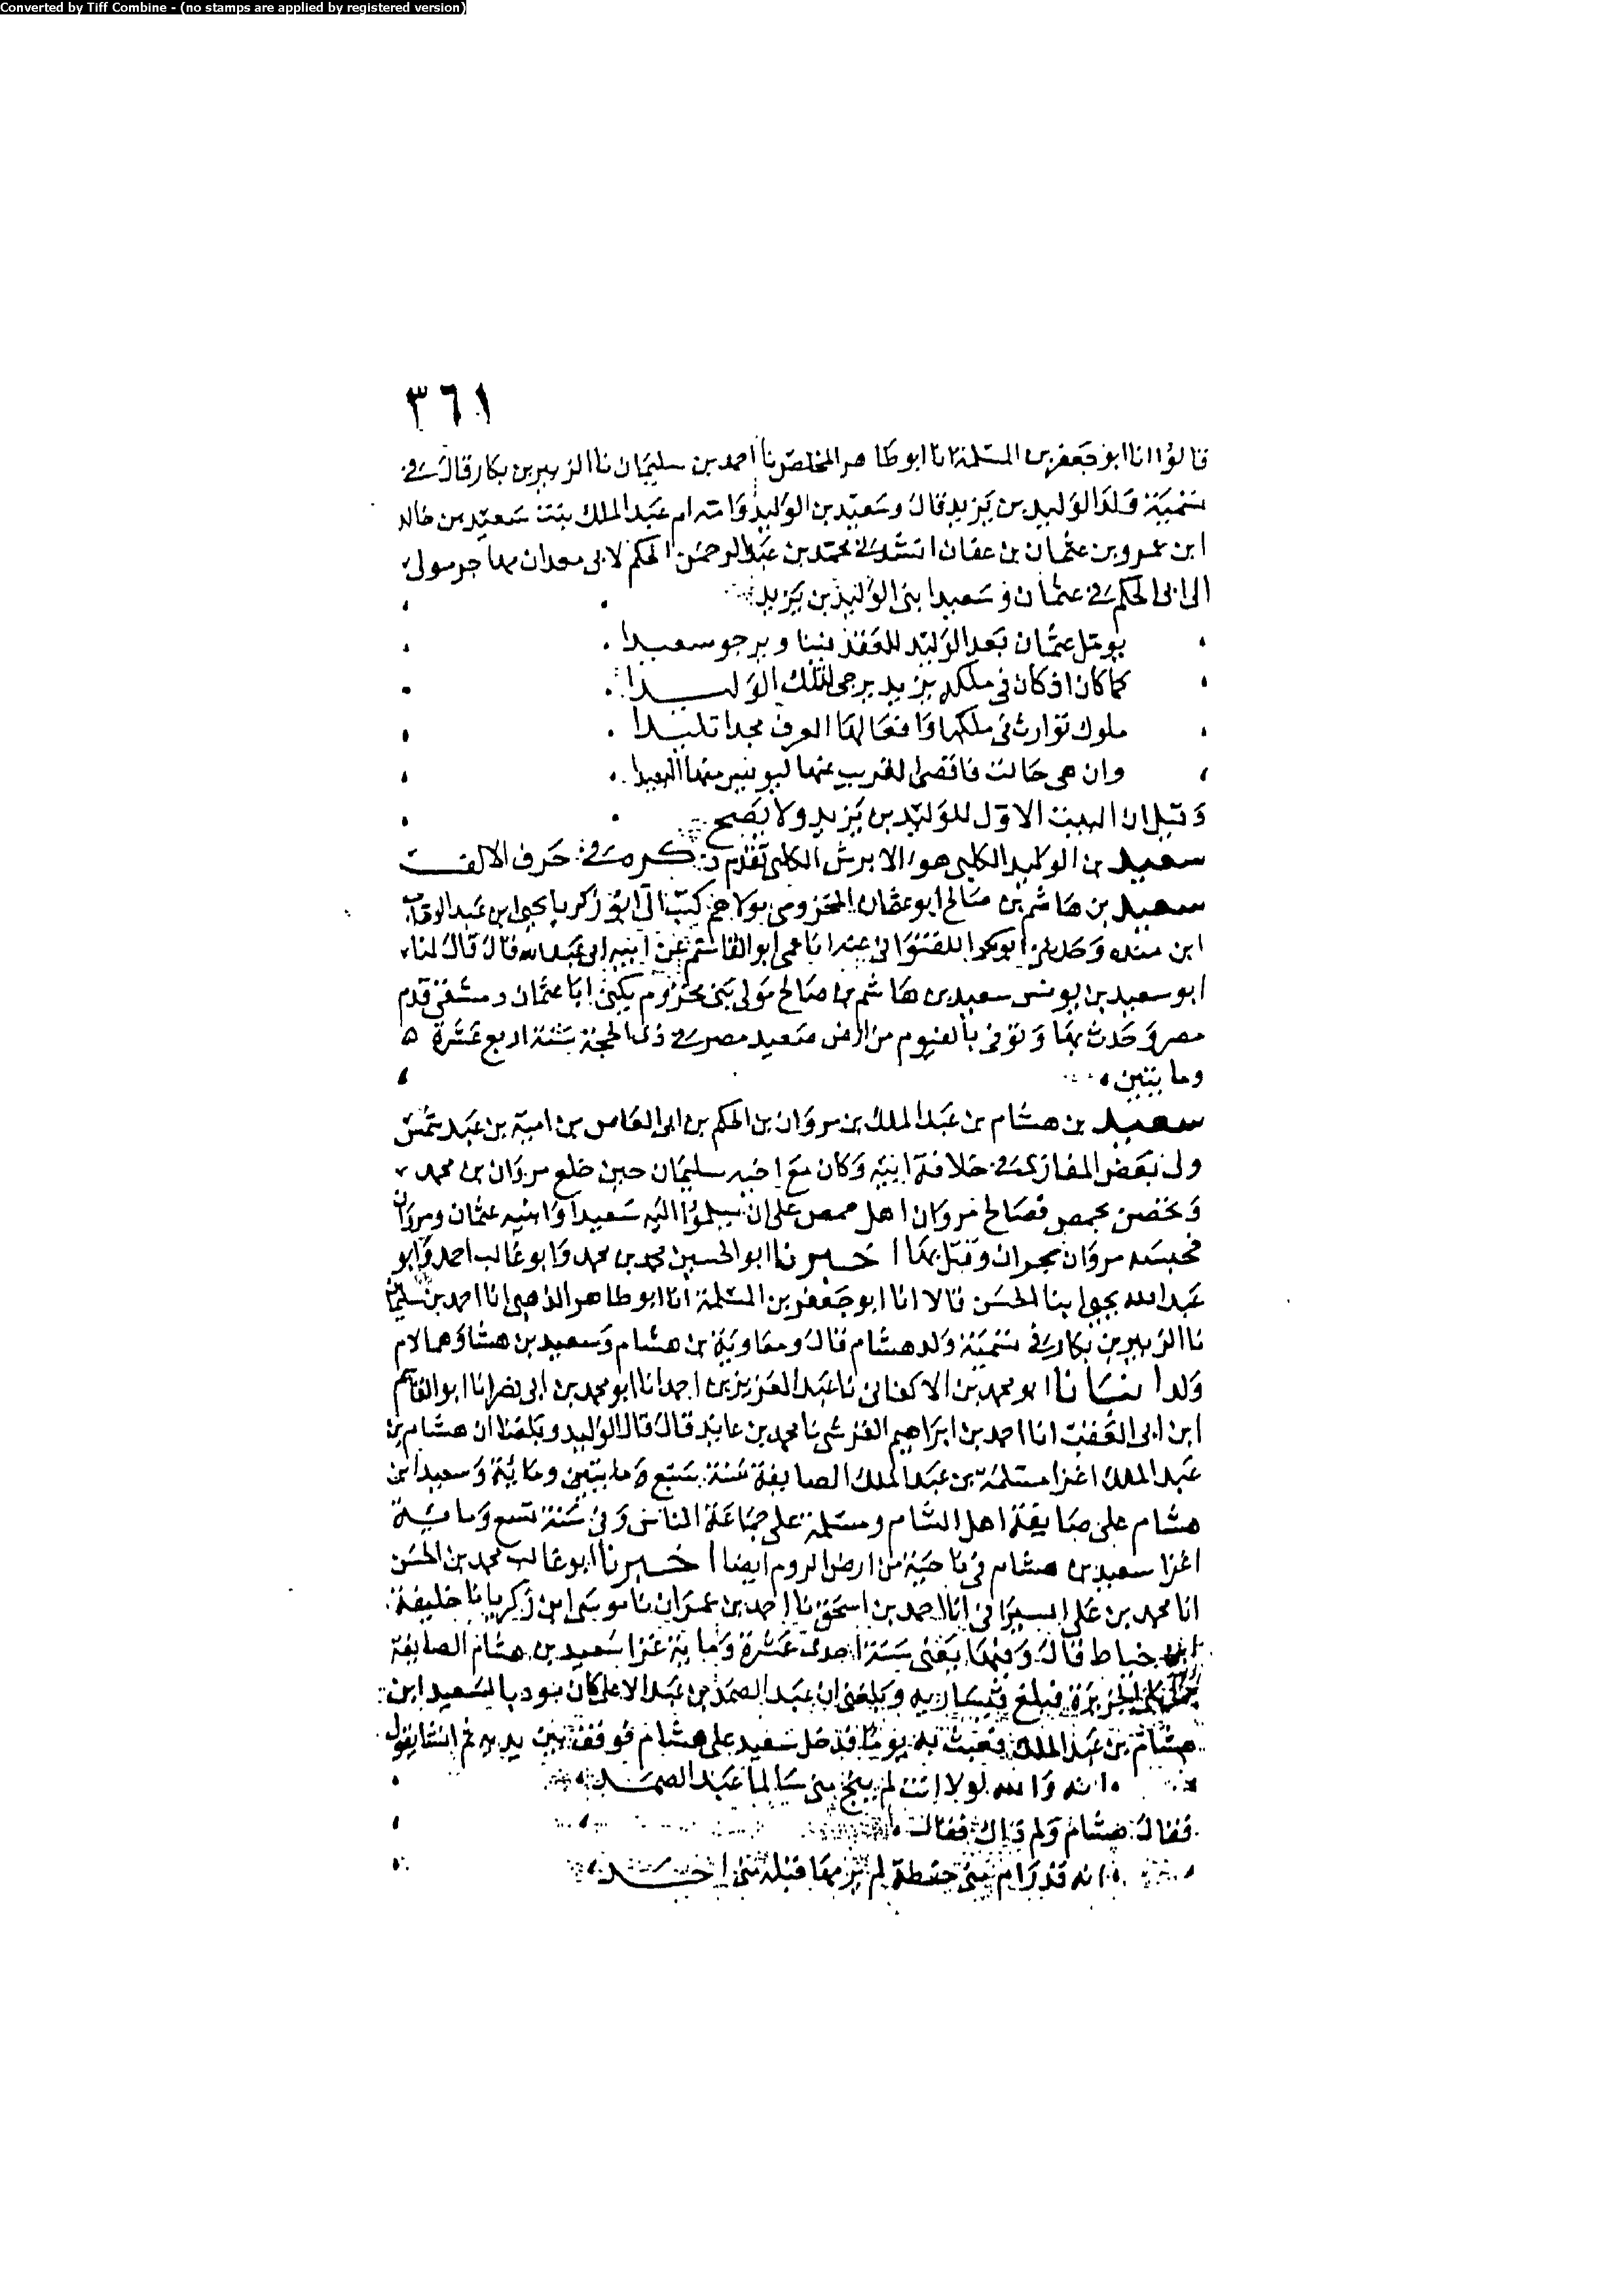 Converted by Tiff Combine - (no stamps are applied by registered version)
٣٦١
قالوا انا ابو جعفر بن المسلمة انا ابو طاهر المخلص نا احمد بن سليمان نا الزبير بن بكار قال في
تسمية ولد الوليد بن يزيد قال وسعيد بن الوليد وامه ام عبد الملك بنت سعيد بن خالد
ابن عمرو بن عثمان بن عفان انشدني محمد بن عبد الرحمن الحكم لابي معدان مهاجر مولى
الى ابي الحكم في عثمان وسعيد ابني الوليد بن يزيد
يومل عثمان بعد الوليد للعهد فينا ويرجو سعيدا
كما كان اذ كان في ملكه يزيد يرجى لتلك الوليدا
ملوك توارث في ملكها وافعالها العرف مجدا تليدا
وان هي حالت فاقصى القريب عنها ليونس منها البعيدا
وقيل ان البيت الاول للوليد بن يزيد ولا يصح
سعيد بن الوليد الكلبي هو الابرش الكلبي تقدم ذكره في حرف الالف
سعيد بن هاشم بن صالح ابو عثمان المخزومي مولاهم كتب الي ابو زكريا يحيى ابن عبد الوهاب
ابن منده وحدثني ابو بكر اللفتواني عنه انا عمي ابو القاسم عن ابيه ابي عبد الله قال قال لنا
ابو سعيد بن يونس سعيد بن هاشم بن صالح مولى بني مخزوم يكنى ابا عثمان دمشقي قدم
مصر وحدث بها وتوفي بالفيوم من ارض صعيد مصر في ذي الحجة سنة اربع عشرة
ومايتين
سعيد بن هشام بن عبد الملك بن مروان بن الحكم بن ابي العاص بن امية بن عبد شمس
ولي بعض المغازي في خلافة ابيه وكان مع اخيه سليمان حين خلع مروان بن محمد
وتحصن بحمص فصالح مروان اهل حمص على ان يسلموا اليه سعيدا وابنيه عثمان ومروان
فحبسه مروان بحران وقتل بها اخبرنا ابو الحسين محمد بن محمد وابو غالب احمد وابو
عبد الله يحيى ابنا الحسن قالا انا ابو جعفر بن المسلمة انا ابو طاهر الذهبي انا احمد بن سليمان
نا الزبير بن بكار في تسمية ولد هشام قال ومعاوية بن هشام وسعيد بن هشام وهما لام
ولد انبانا ابو محمد بن الاكفاني نا عبد العزيز بن احمد انا ابو محمد بن ابي نصر انا ابو القاسم
ابن ابي العقب انا احمد بن ابراهيم القرشي نا محمد بن عايذ قال قال الوليد وبلغنا ان هشام بن
عبد الملك اغزا مسلمة بن عبد الملك الصايفة سنة سبع ومايتين وماية وسعيد ابن
هشام على صايفة اهل الشام ومسلمة على جماعة الناس وفي سنة تسع وماية
اغزا سعيد بن هشام في ناحية من ارض الروم ايضا اخبرنا ابو غالب محمد بن الحسن
انا محمد بن علي السيرافي انا احمد بن اسحق نا احمد بن عمران نا موسى ابن زكريا نا خليفة
ابن خياط قال وفيها يعني سنة احدى عشرة وماية غزا سعيد بن هشام الصايفة
الجزيرة فبلغ قيسارية وبلغني ان عبد الصمد بن عبد الاعلى كان مودبا لسعيد ابن
هشام بن عبد الملك فعبث به يوما فدخل سعيد على هشام فوقف بين يديه ثم انشا يقول
انه والله لولا انت لم ينج مني سالما عبد الصمد
فقال هشام ولم ذاك فقال
انه قد رام مني خطة لم يرمها قبله مني احد